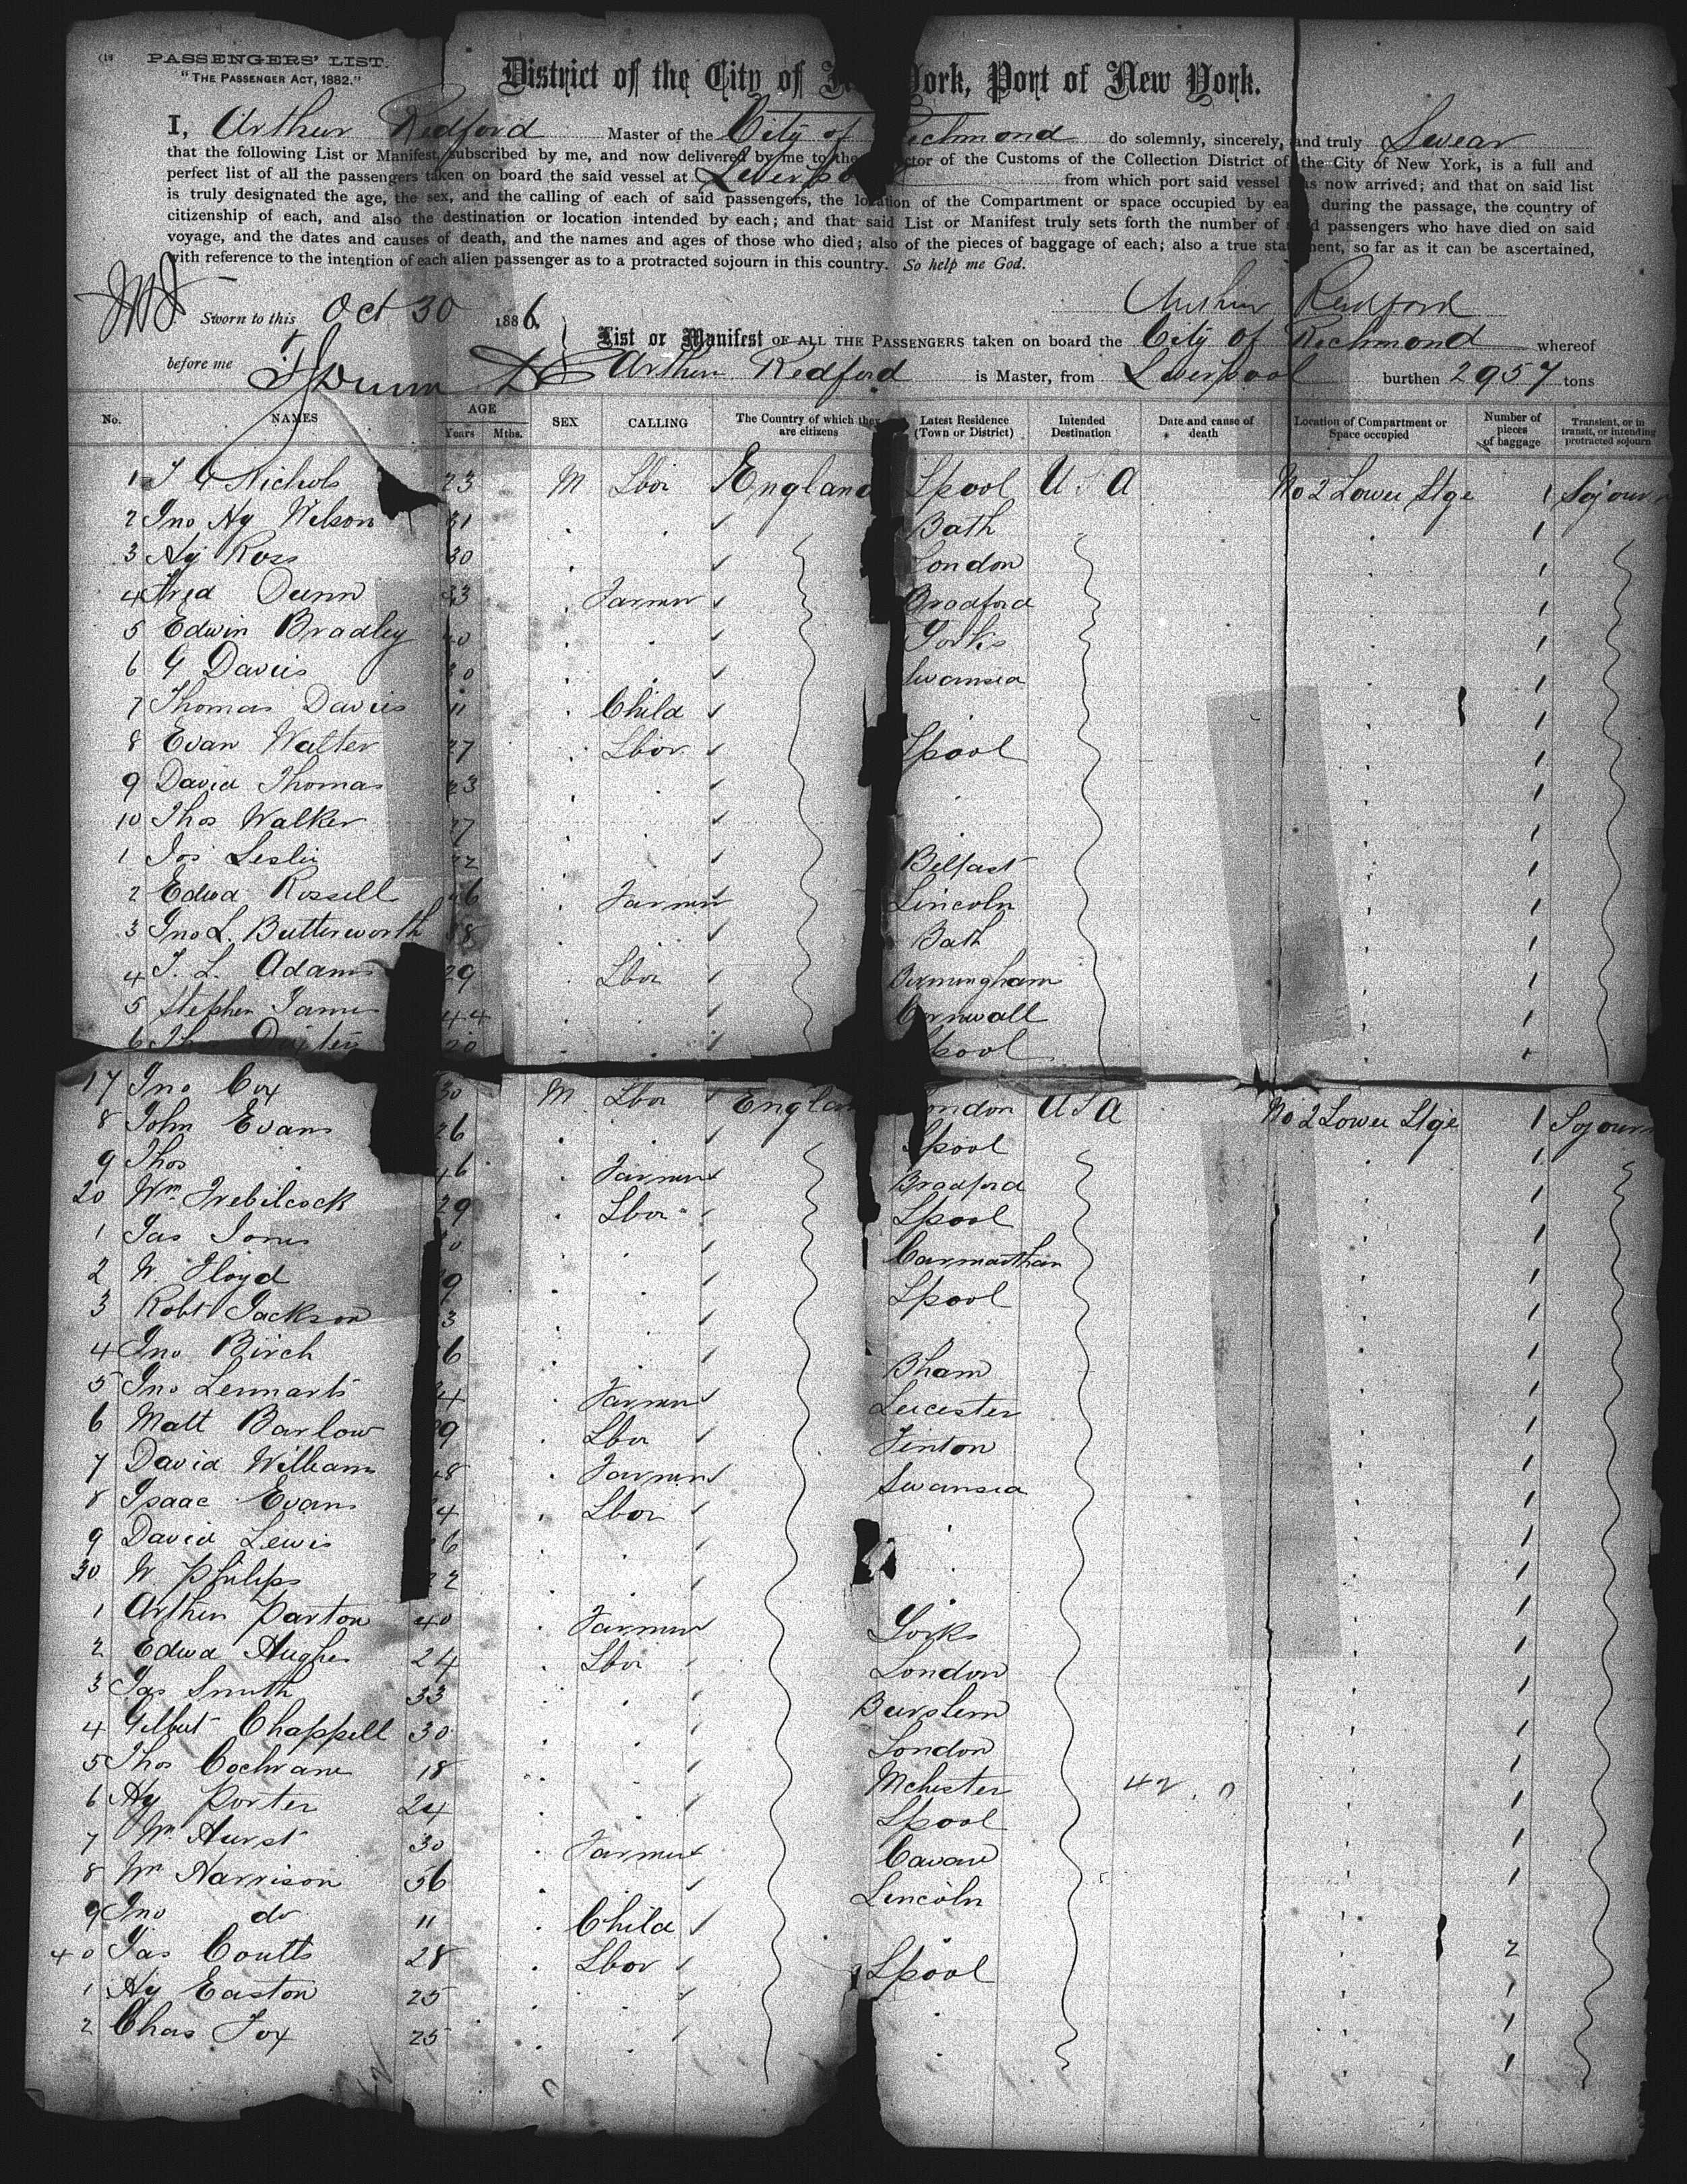 PASSENGERS' LIST.
"THE PASSENGER ACT, 1882."
District of the City of New York, Port of New York.
I, Arthur Redford Master of the City of Richmond do solemnly, sincerely, and truly Swear
that the following List or Manifest, subscribed by me, and now delivered by me to the Collector of the Customs of the Collection District of the City of New York, is a full and
perfect list of all the passengers taken on board the said vessel at Liverpool from which port said vessel has now arrived; and that on said list
is truly designated the age, the sex, and the calling of each of said passengers, the location of the Compartment or space occupied by each during the passage, the country of
citizenship of each, and also the destination or location intended by each; and that said List or Manifest truly sets forth the number of said passengers who have died on said
voyage, and the dates and causes of death, and the names and ages of those who died; also of the pieces of baggage of each; also a true statement, so far as it can be ascertained,
with reference to the intention of each alien passenger as to a protracted sojourn in this country. So help me God.
Sworn to this Oct 30 1886. Arthur Redford
List or Manifest OF ALL THE PASSENGERS taken on board the City of Richmond whereof
before me Arthur Redford is Master, from Liverpool burthen 2957 tons
No. NAMES AGE Years Mths. SEX CALLING The Country of which they are citizens Latest Residence (Town or District) Intended Destination Date and cause of death Location of Compartment or Space occupied Number of pieces of baggage Transient, or in transit, or intending protracted sojourn
1 Nichols 23 M Lbor England Lpool U S A No 2 Lower Stge 1 Sojourn
2 Jno Hy Wilson 31 Bath 1
3 Hy Ross 30 London 1
4 Fred Dunn 33 Farmer Bradford 1
5 Edwin Bradley 40 Yorks 1
6 G Davies 30 Swansea 1
7 Thomas Davies 11 Child 1
8 Evan Walter 27 Lbor Lpool 1
9 David Thomas 23 1
10 Thos Walker 27 1
1 Jos Leslie 22 Belfast 1
2 Edwd Rossell Farmer Lincoln 1
3 Jno L. Butterworth Bath 1
4 J. L. Adams 29 Lbor Birmingham 1
5 Stephen James 44 Cornwall 1
6 20 Lpool
17 Jno Cox 30 M Lbor England London U S A No 2 Lower Stge 1 Sojourn
8 John Evans 26 Lpool 1
9 Thos 46 Farmer Bradford 1
20 Wm Trebilcock 29 Lbor Lpool 1
1 Jas Jones Carmarthen 1
2 W. Floyd Lpool 1
3 Robt Jackson 1
4 Jno Birch Bham 1
5 Jno Lennarts Farmer Leicester 1
6 Matt Barlow Lbor 1
7 David Williams 48 Farmer Swansea 1
8 Isaac Evans Lbor 1
9 David Lewis 1
30 W Philips 1
1 Arthur Parton 40 Farmer Yorks 1
2 Edwd Hughes 24 Lbor London 1
3 Jas Smith 33 Burslem 1
4 Gilbert Chappell 30 London 1
5 Thos Cochrane 18 Mchester 42 1
6 Hy Porter 24 Lpool 1
7 Wm Hurst 30 Farmer Cavan 1
8 Wm Harrison 56 Lincoln 1
9 Jno do 11 Child
40 Jas Coutts 28 Lbor Lpool 2
1 Hy Easton 25 1
2 Chas Fox 25 1